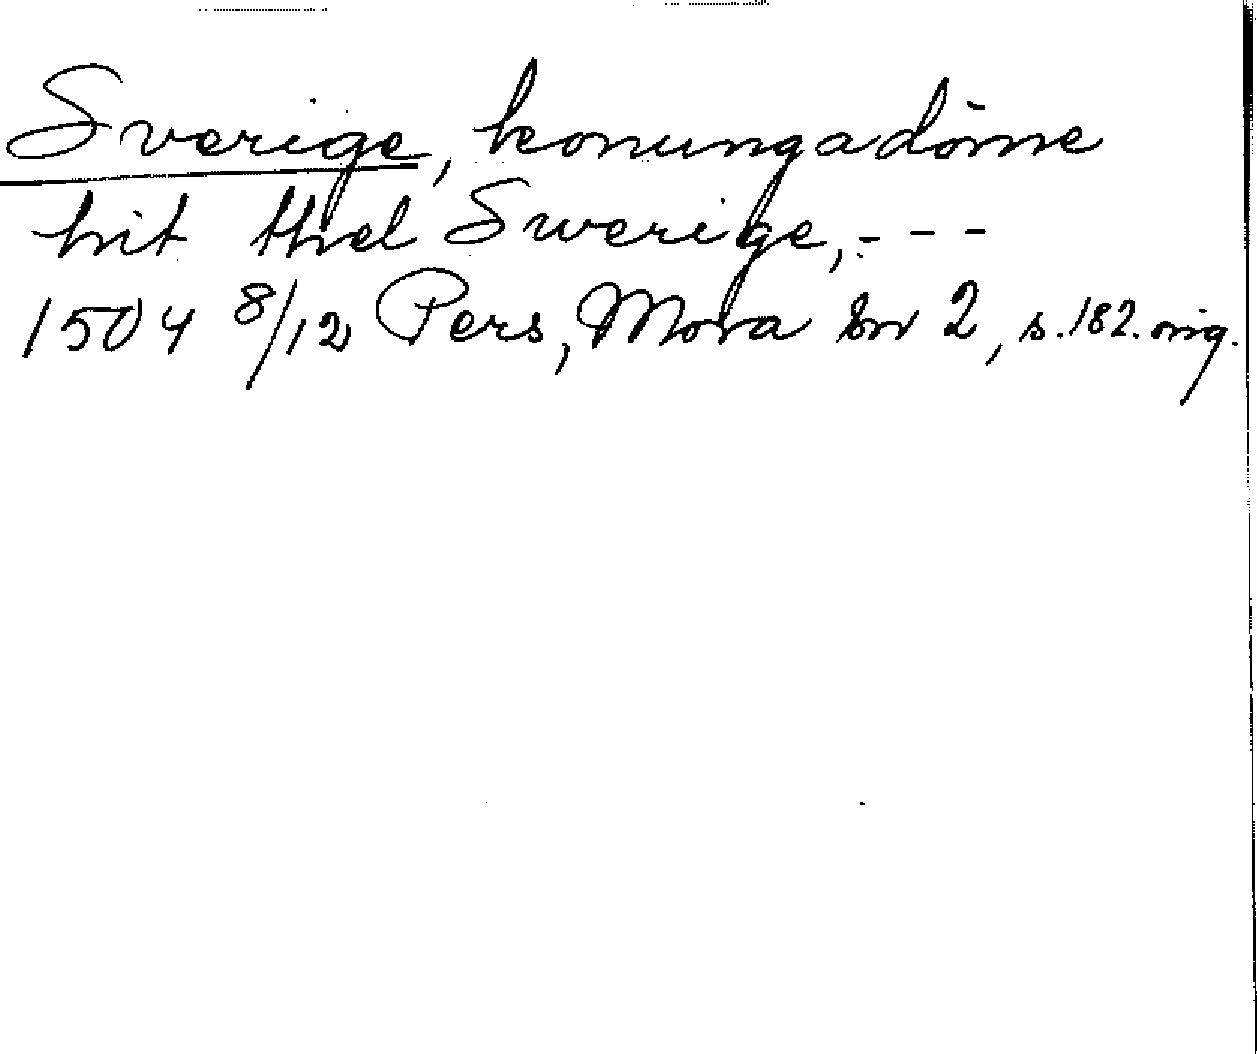 Sverige, konungadöme
hit thel Swerige, - - -
1504 8/12 Pers, Mora br 2, s. 182. orig.